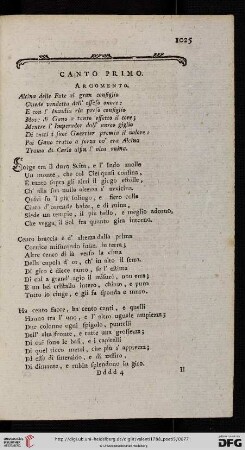 1025
CANTO PRIMO.
ARGOMENTO.
Alcina delle Fate al gran consiglio
Chiede vendetta dell' offeso onore:
E con l' Invidia
Move di Gano a tanto effetto il core;
Mentre l' Imperador dell' aureo giglio
Di tutti i suoi Guerrier premia il valore:
Poi Gano tratto a forza va' ove Alcina
Trama di Carlo alfin l' alta ruina.
Sorge tra il duro Scita, e l' Indo molle
Un monte, che col Ciel quasi confina,
E tanto sopra gli altri il giogo estolle,
Ch' alla sua nulla altezza s' avvicina.
Quivi sul più solingo, e fiero colle
Cinto d' orrende balze, e di ruina,
Siede un tempio, il più bello, e meglio adorno,
Che vegga il Sol fra quanto gira intorno.
Cento braccia è d' altezza dalla prima
Cornice misurando insin in terra;
Altre cento di là verso la cima
Della cupola d' or, ch' in alto il serra.
Di giro è dieci tanto, se l' estima
Di chi a grand' agio il misurò, non erra;
E un bel cristallo intero, chiaro, e puro
Tutto lo cinge, e gli fa sponda e muro.
Ha cento facce, ha cento canti, e quelli
Hanno tra l' uno, e l' altro uguale ampiezza;
Due colonne ogni spigolo, puntelli
Dell' alta fronte, e tutte una grossezza;
Di cui sono le basi, e i capitelli
Di quel ricco metal, che più s' apprezza;
Ed esse di smeraldo, e di zaffiro,
Di diamante, e rubin splendono in giro.
Dddd 4
Il